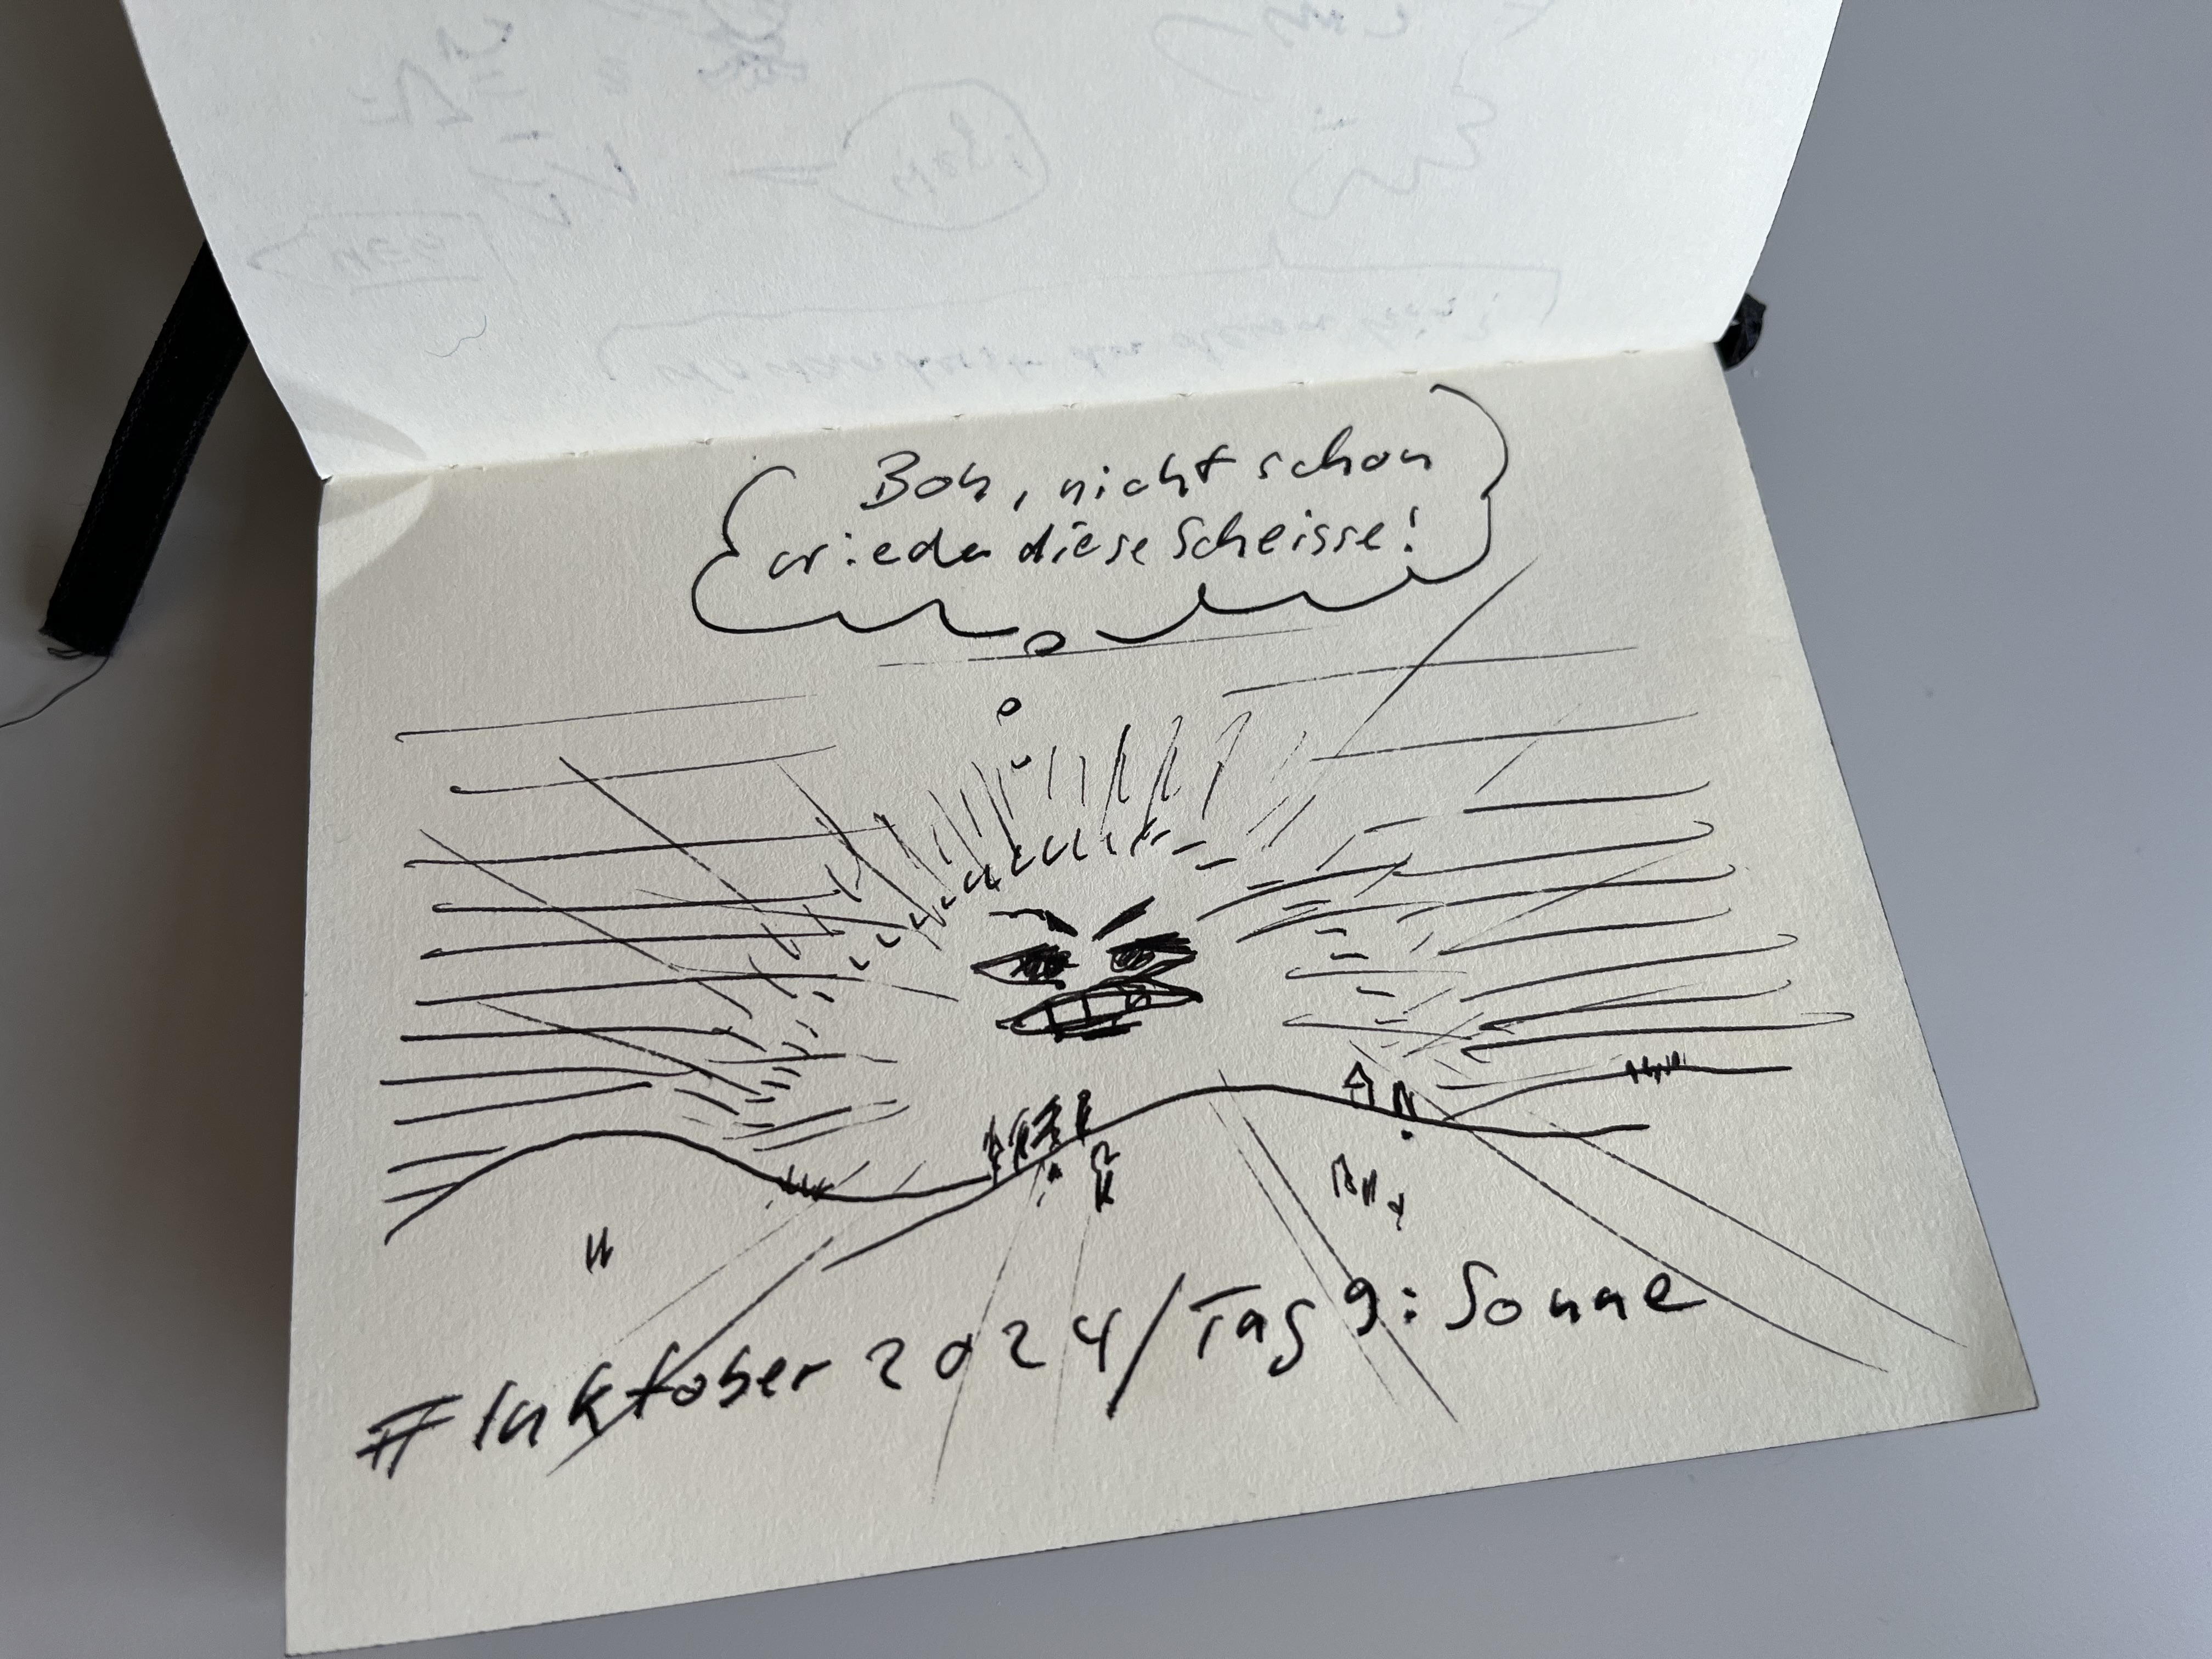 Boh, nicht schon
wieder diese Scheisse!
#Inktober 2024/Tag 9: Sonne